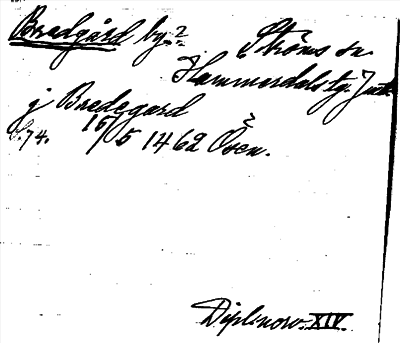 Bredgård by.2 Ströms sn.
Hammerdals tg. Jmtl.
j Bredegard
S. 74. 16/5 1462 Ösen.
Dipl. norv. XIV.